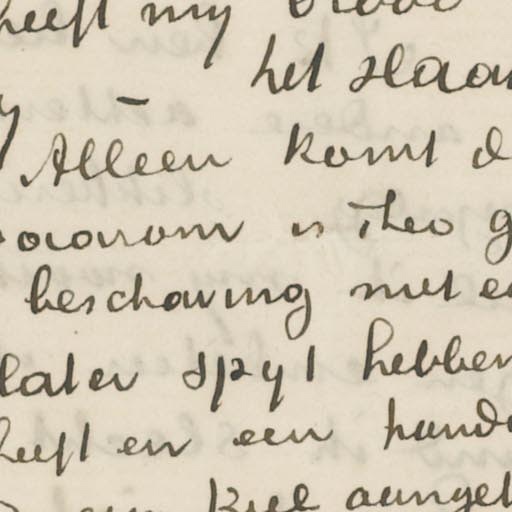 heeft my
het slaan
Alleen komt d
waarom is Theo g
beschaving met e
later spyt hebben
heeft en een hand
een Kiel aanget